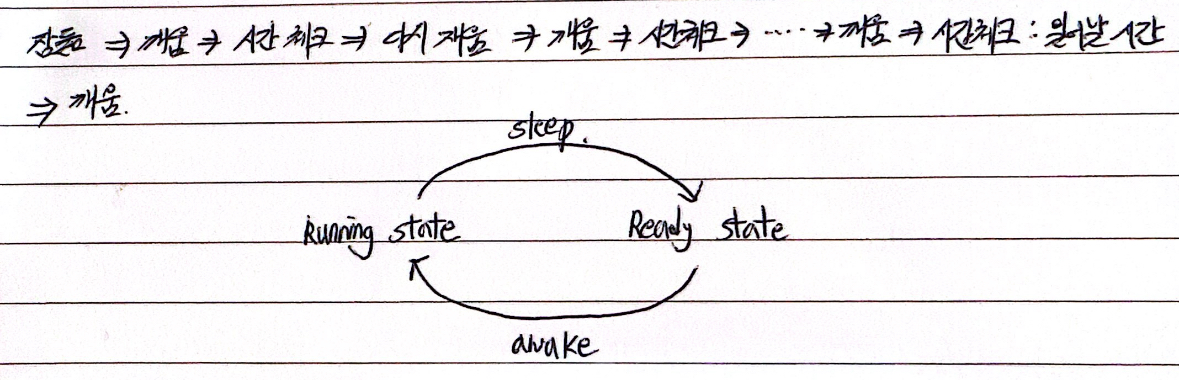 잠듦 ⇒ 깨움 ⇒ 시간 체크 ⇒ 다시 재움 ⇒ 깨움 ⇒ 시간체크 ⇒ ····⇒ 깨움 ⇒ 시간체크 : 일어날 시간
⇒ 깨움.
sleep.
Running state
Ready state
awake